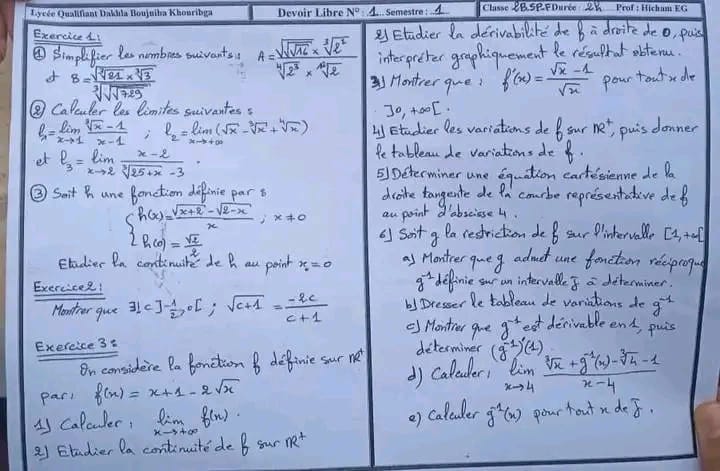 Lycée Qualifiant Dakhla Boujniba Khouribga
Devoir Libre N°: 1 Semestre: 1
Classe 2B.SP.F Durée: 2h Prof: Hicham EG
Exercice 1:
① Simplifier les nombres suivants: A = (√√√16 × ³√2⁵)/(⁴√2³ × ¹²√2)
et B =
② Calculer les limites suivantes:
l₁ = lim x→1 (³√x - 1)/(x - 1) ; l₂ = lim x→+∞ (√x - ³√x + ⁴√x)
et l₃ = lim x→2 (x - 2)/(³√(25+x) - 3).
③ Soit h une fonction définie par:
{ h(x) = (√(x+2) - √(2-x))/x ; x ≠ 0
h(0) = √2/2
Etudier la continuité de h au point x₀ = 0
Exercice 2:
Montrer que ∃! c ∈ ]-1/2, 0[ ; √(c+1) = -2c/(c+1)
Exercice 3:
On considère la fonction f définie sur IR⁺
par: f(x) = x + 1 - 2√x
1) Calculer: lim x→+∞ f(x).
2) Etudier la continuité de f sur IR⁺
2) Etudier la dérivabilité de f à droite de 0, puis
interpréter graphiquement le résultat obtenu.
3) Montrer que: f'(x) = (√x - 1)/√x pour tout x de
]0, +∞[.
4) Etudier les variations de f sur IR⁺, puis donner
le tableau de variations de f.
5) Déterminer une équation cartésienne de la
droite tangente de la courbe représentative de f
au point d'abscisse 4.
6) Soit g la restriction de f sur l'intervalle [1, +∞[
a) Montrer que g admet une fonction réciproque
g⁻¹ définie sur un intervalle J à déterminer.
b) Dresser le tableau de variations de g⁻¹
c) Montrer que g⁻¹ est dérivable en 1, puis
déterminer (g⁻¹)'(1)
d) Calculer: lim x→4 (³√x + g⁻¹(x) - ³√4 - 1)/(x - 4)
e) Calculer g⁻¹(x) pour tout x de J.